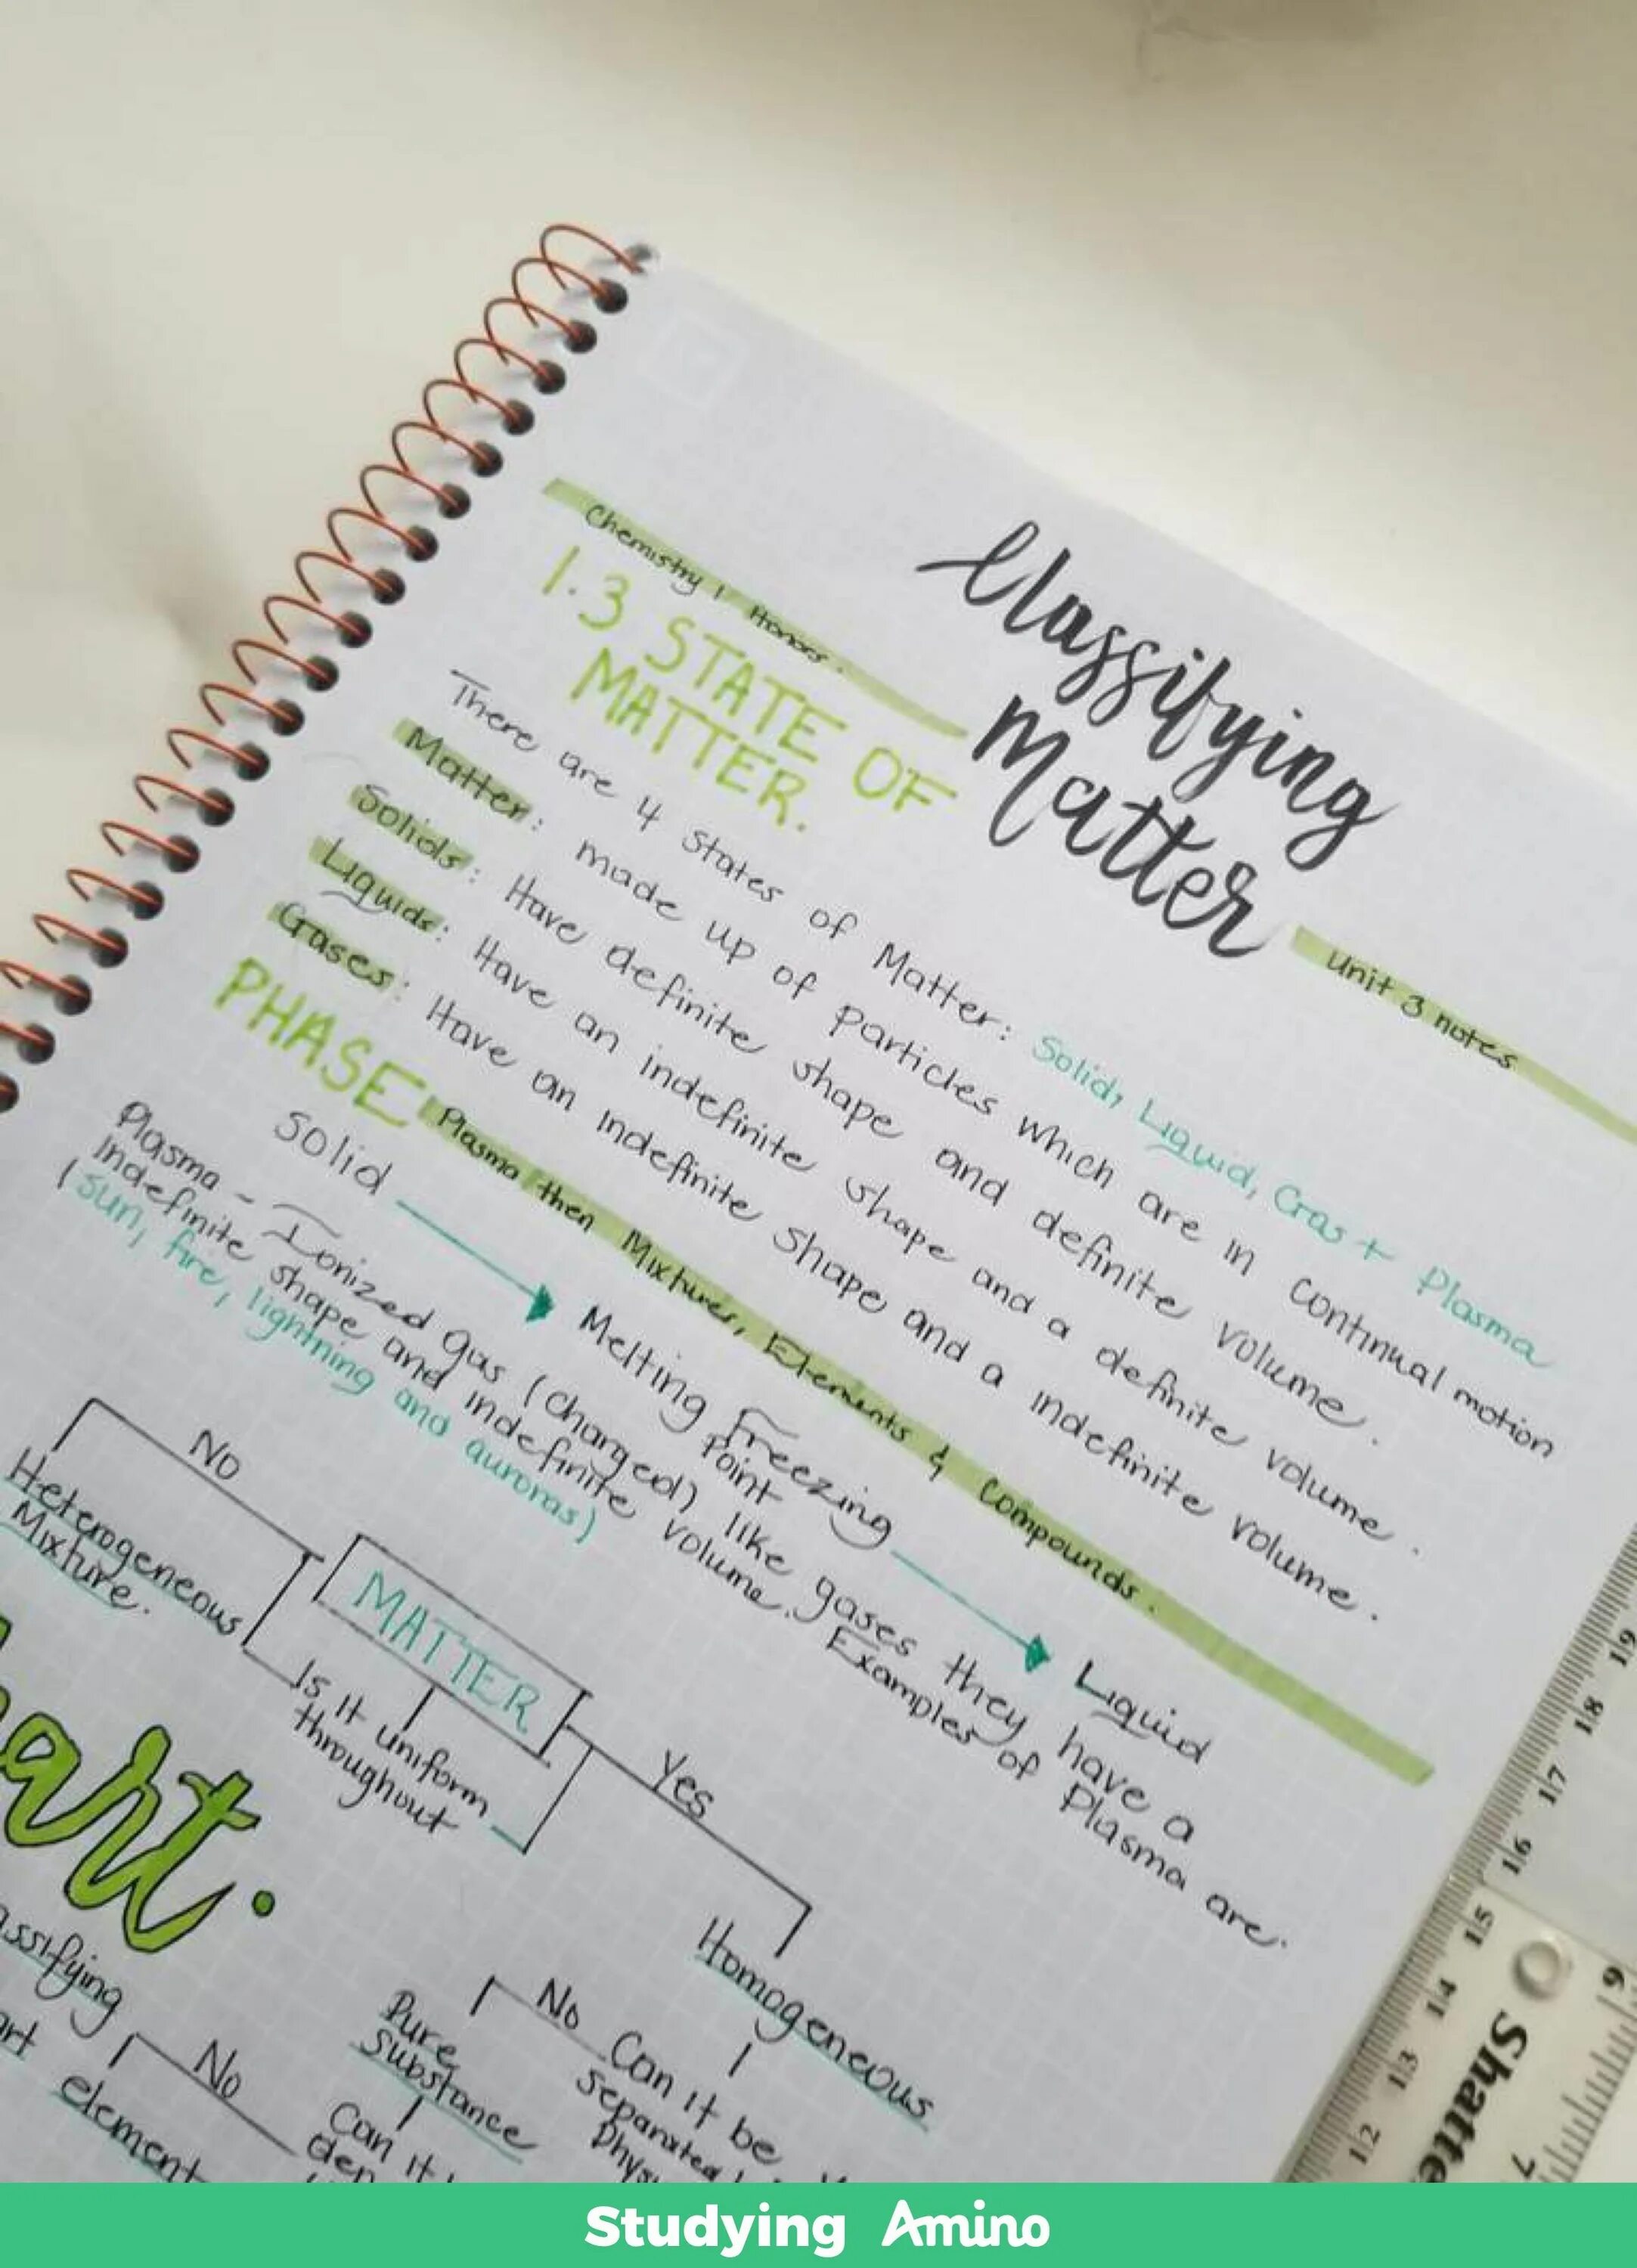 Classifying
Matter
Chemistry 1 Honors.
Unit 3 notes
1.3 STATE OF
MATTER.
There are 4 states of Matter: Solid, Liquid, Gas + Plasma
Matter: made up of particles which are in continual motion
Solids: Have definite shape and definite volume.
Liquids: Have an indefinite shape and a definite volume.
Gases: Have an indefinite shape and a indefinite volume.
PHASE Plasma then Mixtures, Elements & Compounds.
Solid Melting Freezing Liquid
Point
Plasma - Ionized gas (charged) like gases they have a
indefinite shape and indefinite volume. Examples of Plasma are.
(sun, fire, lightning and auroras)
No
MATTER
Yes
Heterogeneous
Mixture.
Is it uniform
throughout
Homogeneous
art.
No
Can it be
separated
Pure
Substance
No
Can it
element
Studying Amino
Shatte
19
18
17
16
15
14
13
12
9
7